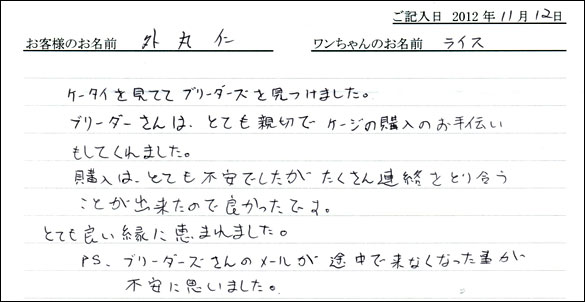 ご記入日 2012年11月12日
お客様のお名前 外丸 仁 ワンちゃんのお名前 ライス
ケータイを見ててブリーダーズを見つけました。
ブリーダーさんは、とても親切でケージの購入のお手伝い
もしてくれました。
購入は、とても不安でしたがたくさん連絡をとり合う
ことが出来たので良かったです。
とても良い縁に恵まれました。
PS、ブリーダーズさんのメールが途中で来なくなった事が
不安に思いました。